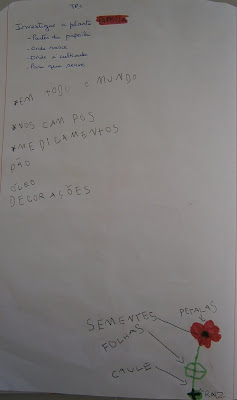 TPC
Investigar a planta
- Partes da papoila
- Onde nasce
- Onde é cultivada
- Para que serve
*EM TODO O MUNDO
*NOS CAMPOS
*MEDICAMENTOS
PÃO
ÓLEO
DECORAÇÕES
PETALAS
SEMENTES
FOLHAS
CAULE
RAIZ